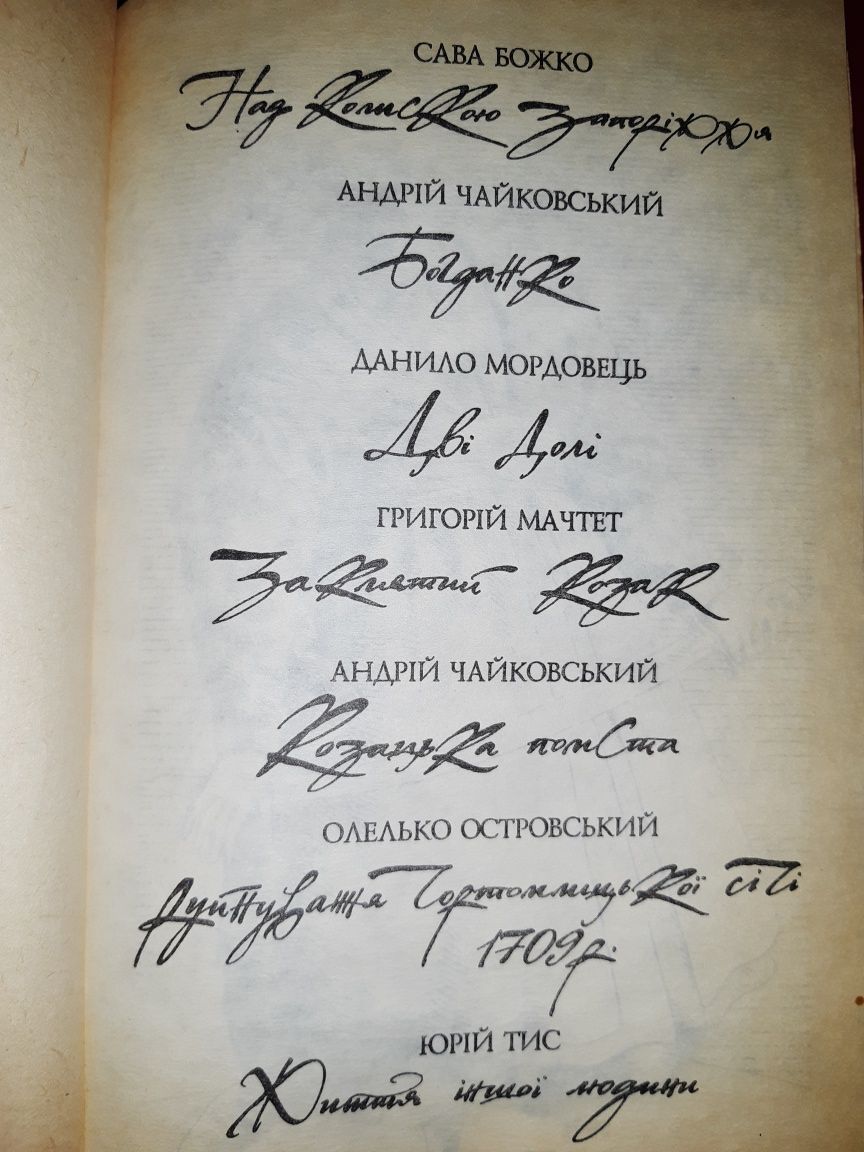 САВА БОЖКО
Над колискою Запоріжжя
АНДРІЙ ЧАЙКОВСЬКИЙ
Богданко
ДАНИЛО МОРДОВЕЦЬ
Дві долі
ГРИГОРІЙ МАЧТЕТ
Заклятий козак
АНДРІЙ ЧАЙКОВСЬКИЙ
Козацька помста
ОЛЕЛЬКО ОСТРОВСЬКИЙ
Руйнування Чортомлицької січі
1709 р.
ЮРІЙ ТИС
Життя іншої людини